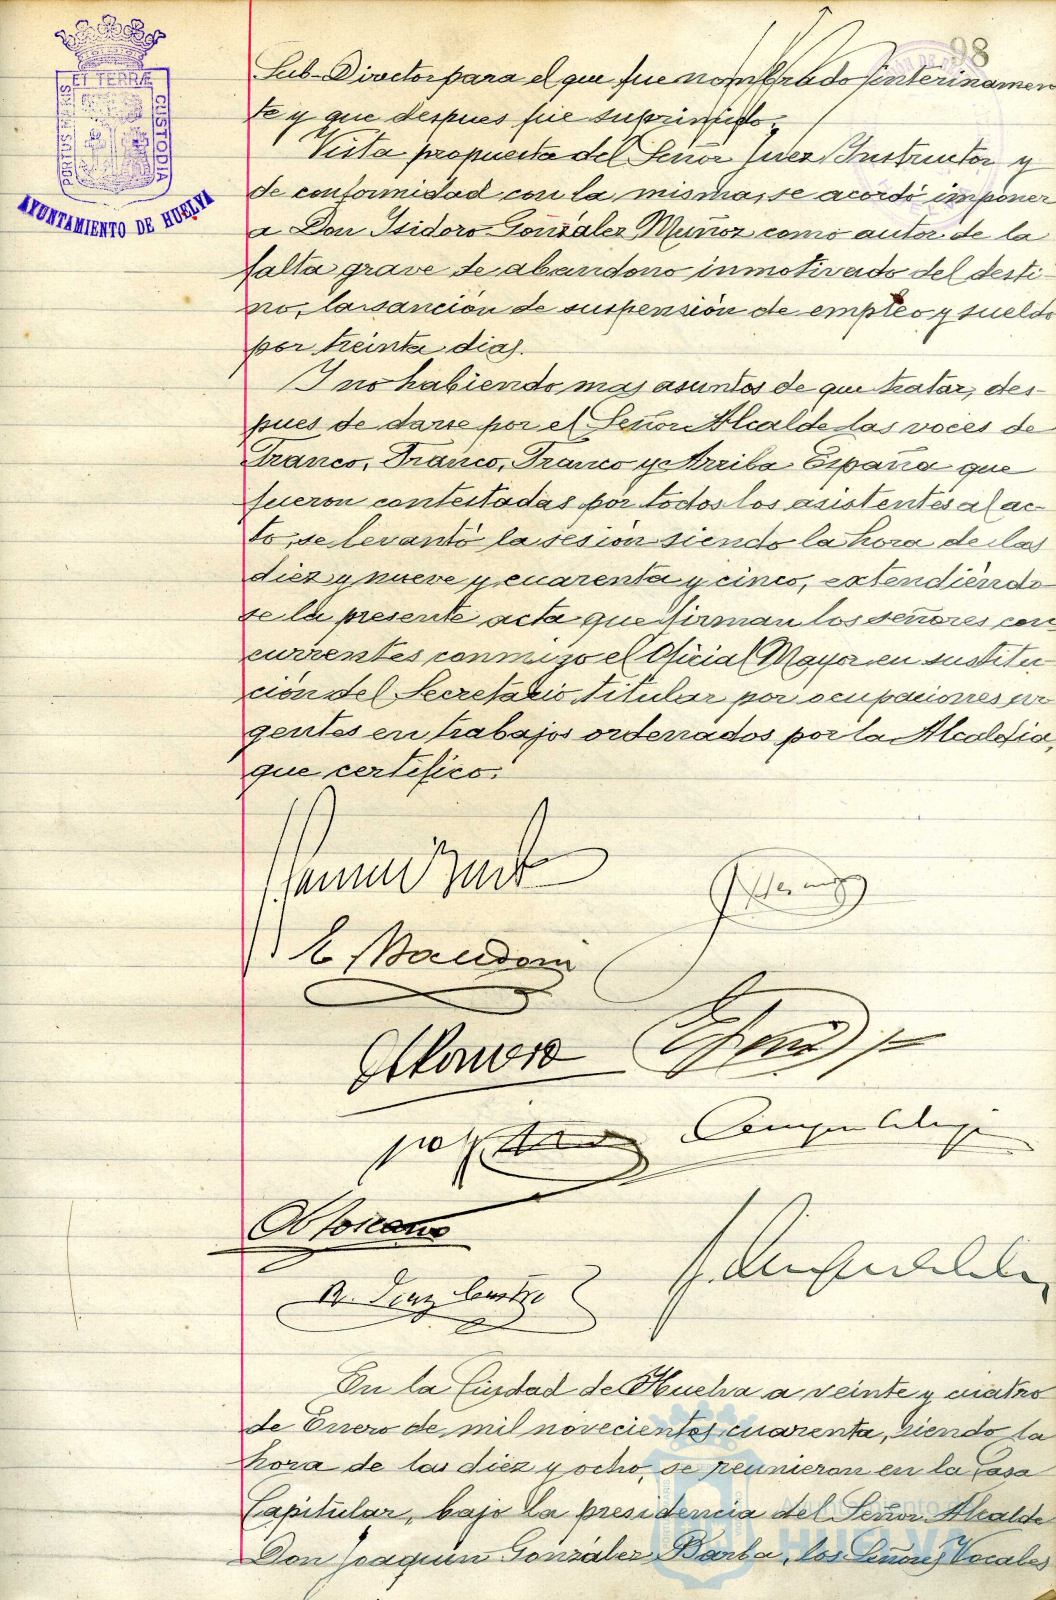 98
PORTUS MARIS ET TERRÆ CUSTODIA
AYUNTAMIENTO DE HUELVA
Sub-Director para el que fue nombrado interinamen
te y que despues fue suprimido.
Vista propuesta del Señor Juez Instructor y
de conformidad con la misma, se acordó imponer
a Don Isidoro González Muñoz como autor de la
falta grave de abandono inmotivado del desti-
no, la sanción de suspensión de empleo y sueldo
por treinta dias.
Y no habiendo mas asuntos de que tratar, des-
pues de darse por el Señor Alcalde las voces de
Franco, Franco, Franco y Arriba España que
fueron contestadas por todos los asistentes al ac-
to, se levantó la sesión siendo la hora de las
diez y nueve y cuarenta y cinco, extendiendo
se la presente acta que firman los señores con
currentes conmigo el Oficial Mayor en sustitu-
ción del Secretario titular por ocupaciones ur
gentes en trabajos ordenados por la Alcaldia,
que certifico.
R. Diaz
En la Ciudad de Huelva a veinte y cuatro
de Enero de mil novecientos cuarenta, siendo la
hora de las diez y ocho, se reunieron en la Casa
Capitular, bajo la presidencia del Señor Alcalde
Don Joaquin González Barba, los Señores Vocales
Ayuntamiento de
HUELVA